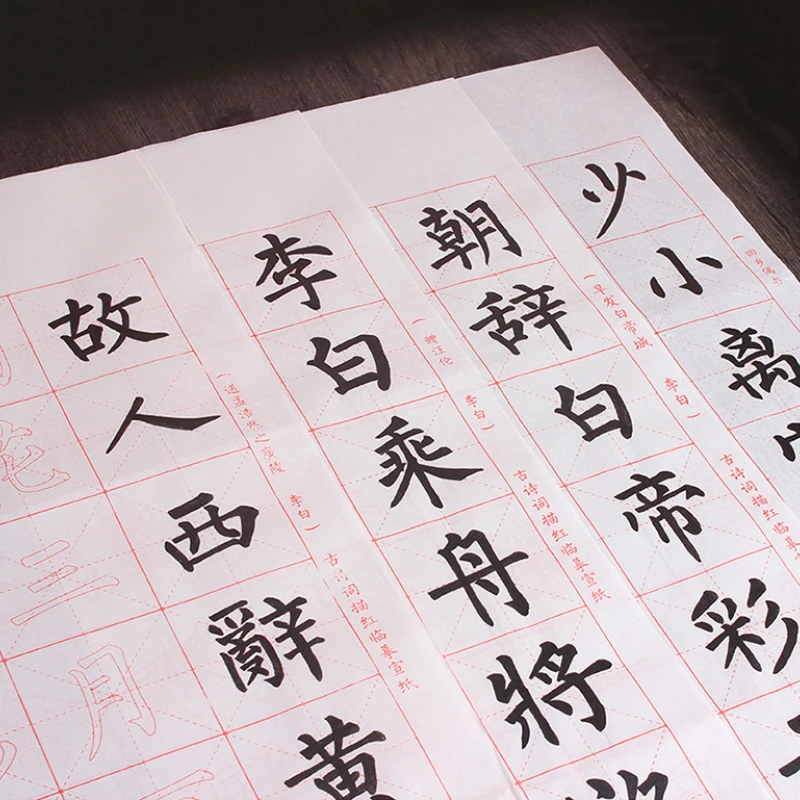 （回乡偶书
少小离
（早发白帝城 李白） 古诗词描红临摹宣纸
朝辞白帝彩
（赠汪伦 李白） 古诗词描红临摹宣纸
李白乘舟將
（送孟浩然之广陵 李白） 古诗词描红临摹宣纸
故人西辭黄
花三月